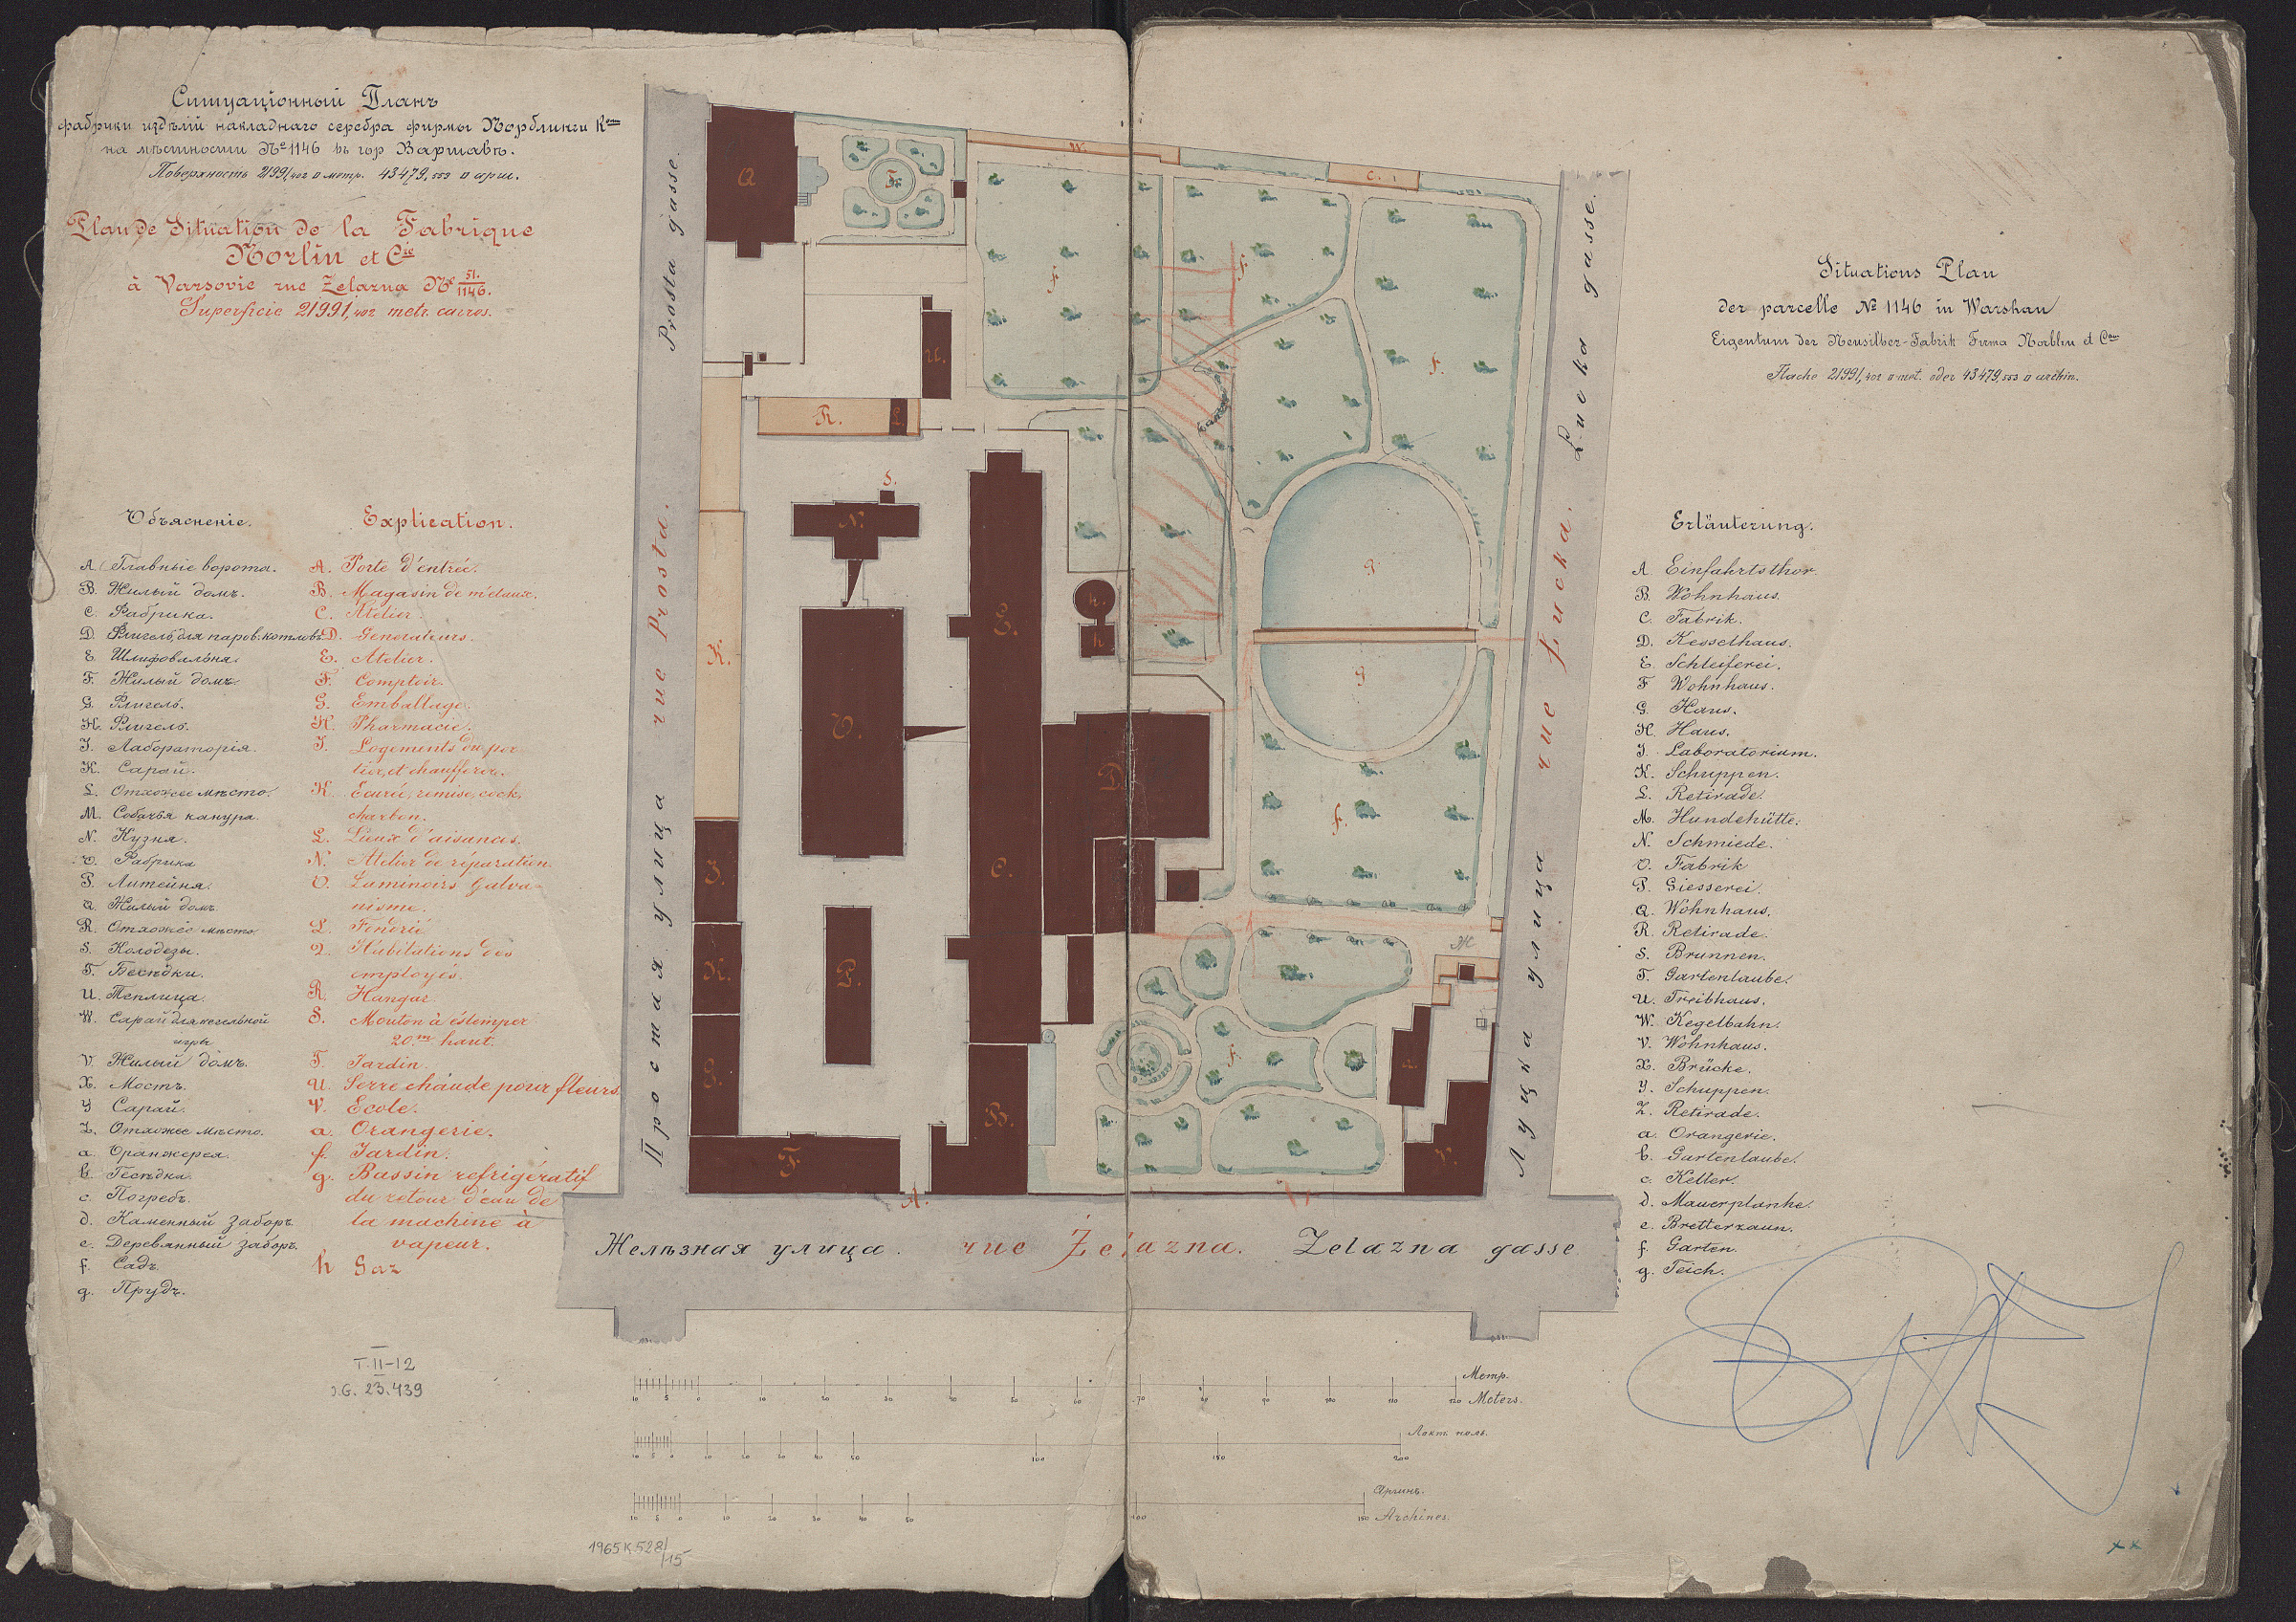 Ситуаціонный Планъ
фабрики издѣлій накладнаго серебра фирмы Норблинги Комп
на мѣстности № 1146 въ гор Варшавѣ.
Поверхность 21991,402 □ метр. 43479,553 □ арш.
Plan de Situation de la Fabrique
Norlin et Cie
à Varsovie rue Zelazna № 51./1146.
Superficie 21991,402 metr. carres.
Situations Plan
der parcelle № 1146 in Warshau
Eigentum der Neusilber-Fabrik Firma Norblin et Com
Flache 21991,402 □ met. oder 43479,553 □ archin.
Объясненіе.
А. Главные ворота.
B. Жилый домъ.
C. Фабрика.
D. Флигель для паров. котловъ
E. Шлифовальня.
F. Жилый домъ.
G. Флигель.
H. Флигель.
J. Лабораторія.
K. Сарай.
L. Отхожее мѣсто.
M. Собачья канура.
N. Кузня.
O. Фабрика
P. Литейня.
Q. Жилый домъ.
R. Отхожее мѣсто
S. Колодезы.
T. Бесѣдки.
U. Теплица.
W. Сарай для кегельной
игры
V. Жилый домъ.
X. Мостъ.
Y. Сарай.
Z. Отхожее мѣсто.
a. Оранжерея.
b. Бесѣдка.
c. Погребъ.
d. Каменный заборъ.
e. Деревянный заборъ.
f. Садъ.
g. Прудъ.
Explication.
A. Porte d'entrée.
B. Magasin de métaux.
C. Atelier.
D. Generateurs.
E. Atelier.
F. Comptoir.
G. Emballage.
H. Pharmacie.
J. Logements du por
tier, et chauffeur.
K. Ecurie, remise, cock,
charbon.
L. Lieux d'aisances.
N. Atelier de réparation.
O. Laminoirs Galva-
nisme.
L. Fondrie
Q. Habitations des
employés.
R. Hangar.
S. Mouton à estemper
20.m haut.
T. Jardin
U. Serre chaude pour fleurs.
V. Ecole.
a. Orangerie.
f. Jardin.
g. Bassin refrigératif
du retour d'eau de
la machine à
vapeur.
h Gaz
Erläuterung.
A. Einfahrtsthor.
B. Wohnhaus.
C. Fabrik.
D. Kesselhaus.
E. Schleiferei.
F Wohnhaus.
G. Haus.
H. Haus.
J. Laboratorium.
K. Schuppen.
L. Retirade.
M. Hundehütte.
N. Schmiede.
O. Fabrik
P. Giesserei.
Q. Wohnhaus.
R. Retirade.
S. Brunnen.
T. Gartenlaube.
U. Treibhaus.
W. Kegelbahn.
V. Wohnhaus.
X. Brücke.
Y. Schuppen.
Z. Retirade.
a. Orangerie.
b. Gartenlaube.
c. Keller.
d. Mauerplanke.
e. Bretterzaun.
f. Garten.
g. Teich.
Простая улица rue Prosta. Prosta gasse.
Луцкая улица rue Łucka. Lucka gasse.
Желѣзная улица. rue Żelazna. Zelazna gasse
Q
T.
W.
C.
F.
F.
F.
U.
R.
L.
S.
N.
K.
E.
h.
h
g
g
O.
D
f.
J.
C.
K.
P.
G.
F.
a.
B.
F.
V.
A.
Ж
10 5 0 10 20 30 40 50 60 70 80 90 100 110 120
Метр.
Meters.
10 5 0 10 20 30 40 50 100 150 200
Локт. поль.
10 5 0 10 20 30 40 50 100 150
Аршинъ.
Archines.
T.II-12
J.G. 23.439
1965 K 528/15
x x